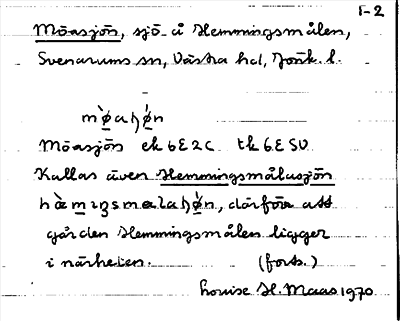 1-2
Möasjön, sjö å Hemmingsmålen,
Svenarums sn, Västra hd, Jönk. l.
Möasjön ek 6E2c tk 6E SV
Kallas även Hemmingsmålasjön
, därför att
gården Hemmingsmålen ligger
i närheten. (forts.)
Louise H. Maas 1970